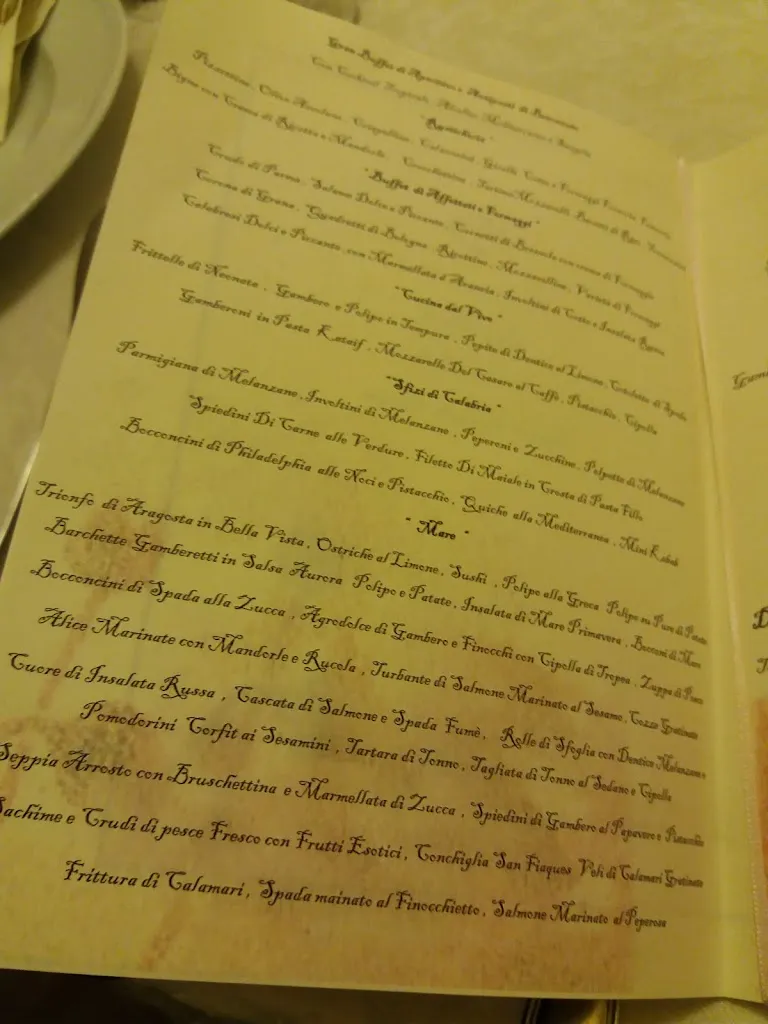 Gran Buffet di Aperitivo e Antipasti di Benvenuto
Con Cocktail Regionale, Alcolico Mediterraneo e
" Rusticherie "
Pizzettine, Olive Ascolane, Crespelline, Calamarini, Girelle Cotto e Formaggi
Bigne con Crema di Ricotta e Mandorle, Mozzarelle
"Buffet di Affettati e Formaggi"
Crudo di Parma, Salame Dolce e Piccante, Cornetti di Bresaola con crema di Formaggio
Corona di Grana, Quadretti di Bologna Ricottine, Mozzarelline, Varietà di Formaggi
Calabresi Dolci e Piccante con Marmellata d'Arancia, Involtini di Cotto e Insalata Russa
"Cucina dal Vivo"
Frittelle di Neonata, Gambero e Polipo in Tempura, Pepite di Dentice al Limone, Cotolette di Spada
Gamberoni in Pasta Kataif, Mozzarelle Del Casaro al Caffè, Pistacchio, Cipolla
"Sfizi di Calabria"
Parmigiana di Melanzane, Involtini di Melanzane, Peperoni e Zucchine, Polpette di Melanzane
Spiedini Di Carne alle Verdure, Filetto Di Maiale in Crosta di Pasta Fillo
Bocconcini di Philadelphia alle Noci e Pistacchio, Quiche alla Mediterranea, Mini Kebab
" Mare "
Trionfo di Aragosta in Bella Vista, Ostriche al Limone, Sushi, Polipo alla Greca Polipo su Pure di Patate
Barchette Gamberetti in Salsa Aurora Polipo e Patate, Insalata di Mare Primavera, Bocconi di Mare
Bocconcini di Spada alla Zucca, Agrodolce di Gambero e Finocchi con Cipolla di Tropea, Zuppa di Pesce
Alice Marinate con Mandorle e Rucola, Turbante di Salmone Marinato al Sesamo, Cozze Gratinate
Cuore di Insalata Russa, Cascata di Salmone e Spada Fumè, Rolle di Sfoglia con Dentice Melanzane e
Pomodorini Corfit ai Sesamini, Tartara di Tonno, Tagliata di Tonno al Sedano e Cipolla
Seppia Arrosto con Bruschettina e Marmellata di Zucca, Spiedini di Gambero al Papavero e Pistacchio
Sachime e Crudi di pesce Fresco con Frutti Esotici, Conchiglia San Fiaques Veli di Calamari Gratinate
Frittura di Calamari, Spada mainato al Finocchietto, Salmone Marinato al Peperosa